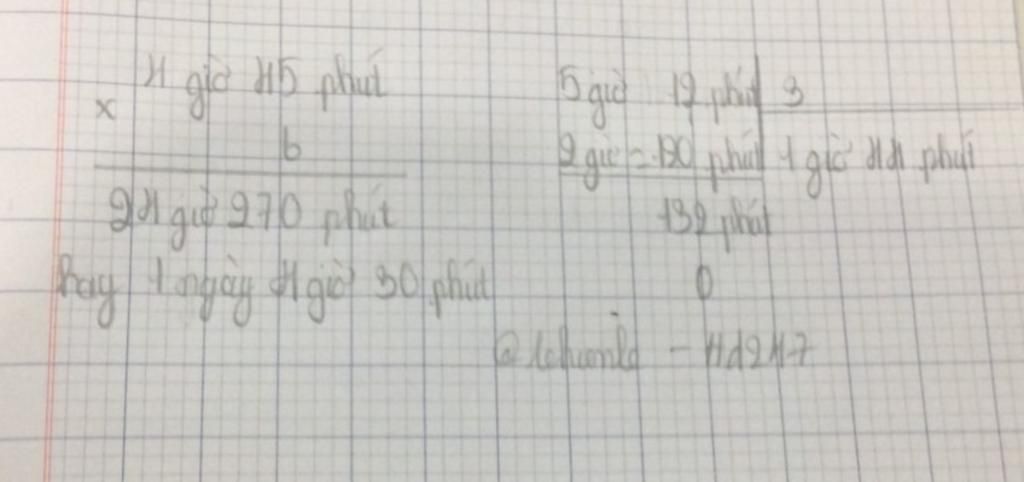 4 giờ 45 phút
x
6
24 giờ 270 phút
hay 1 ngày 4 giờ 30 phút
5 giờ 12 phút 3
2 giờ = 120 phút 1 giờ 44 phút
132 phút
0